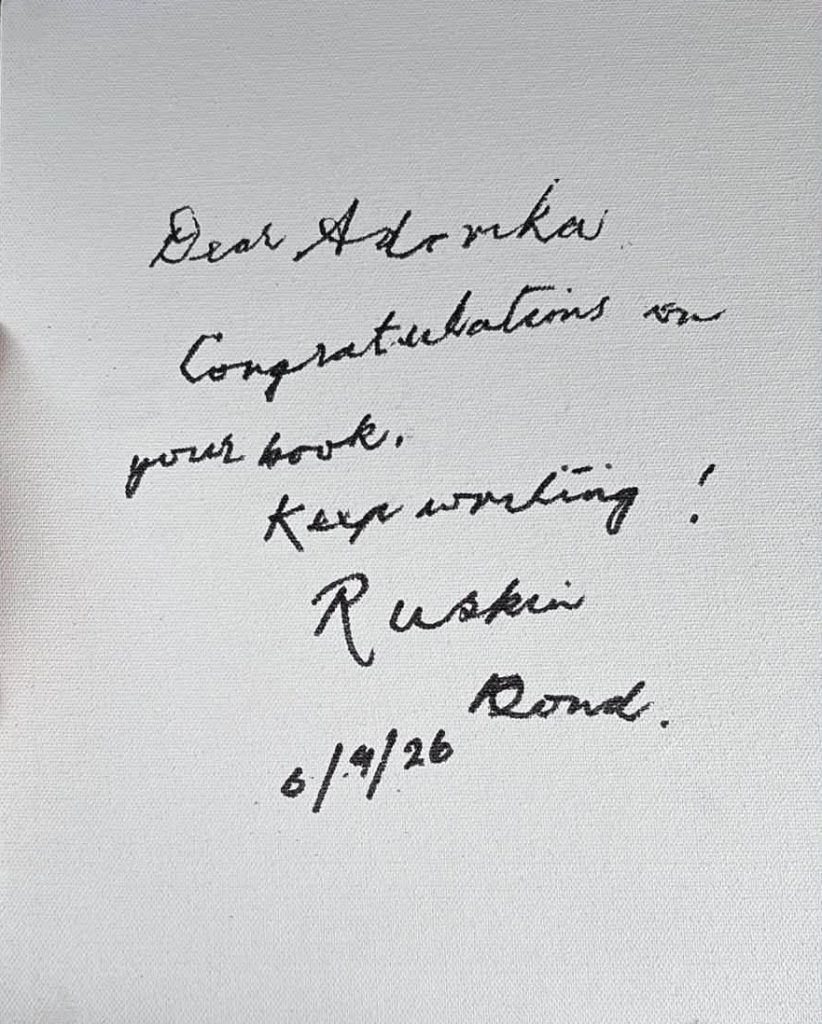 Dear Advika
Congratulations on
your book.
Keep writing!
Ruskin
Bond.
6/4/26